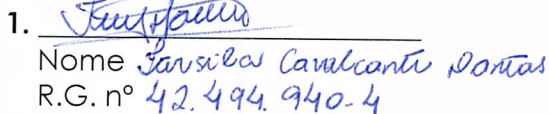 1.
Nome Tarsila Cavalcante Dantas
R.G. nº 42.494.940-4